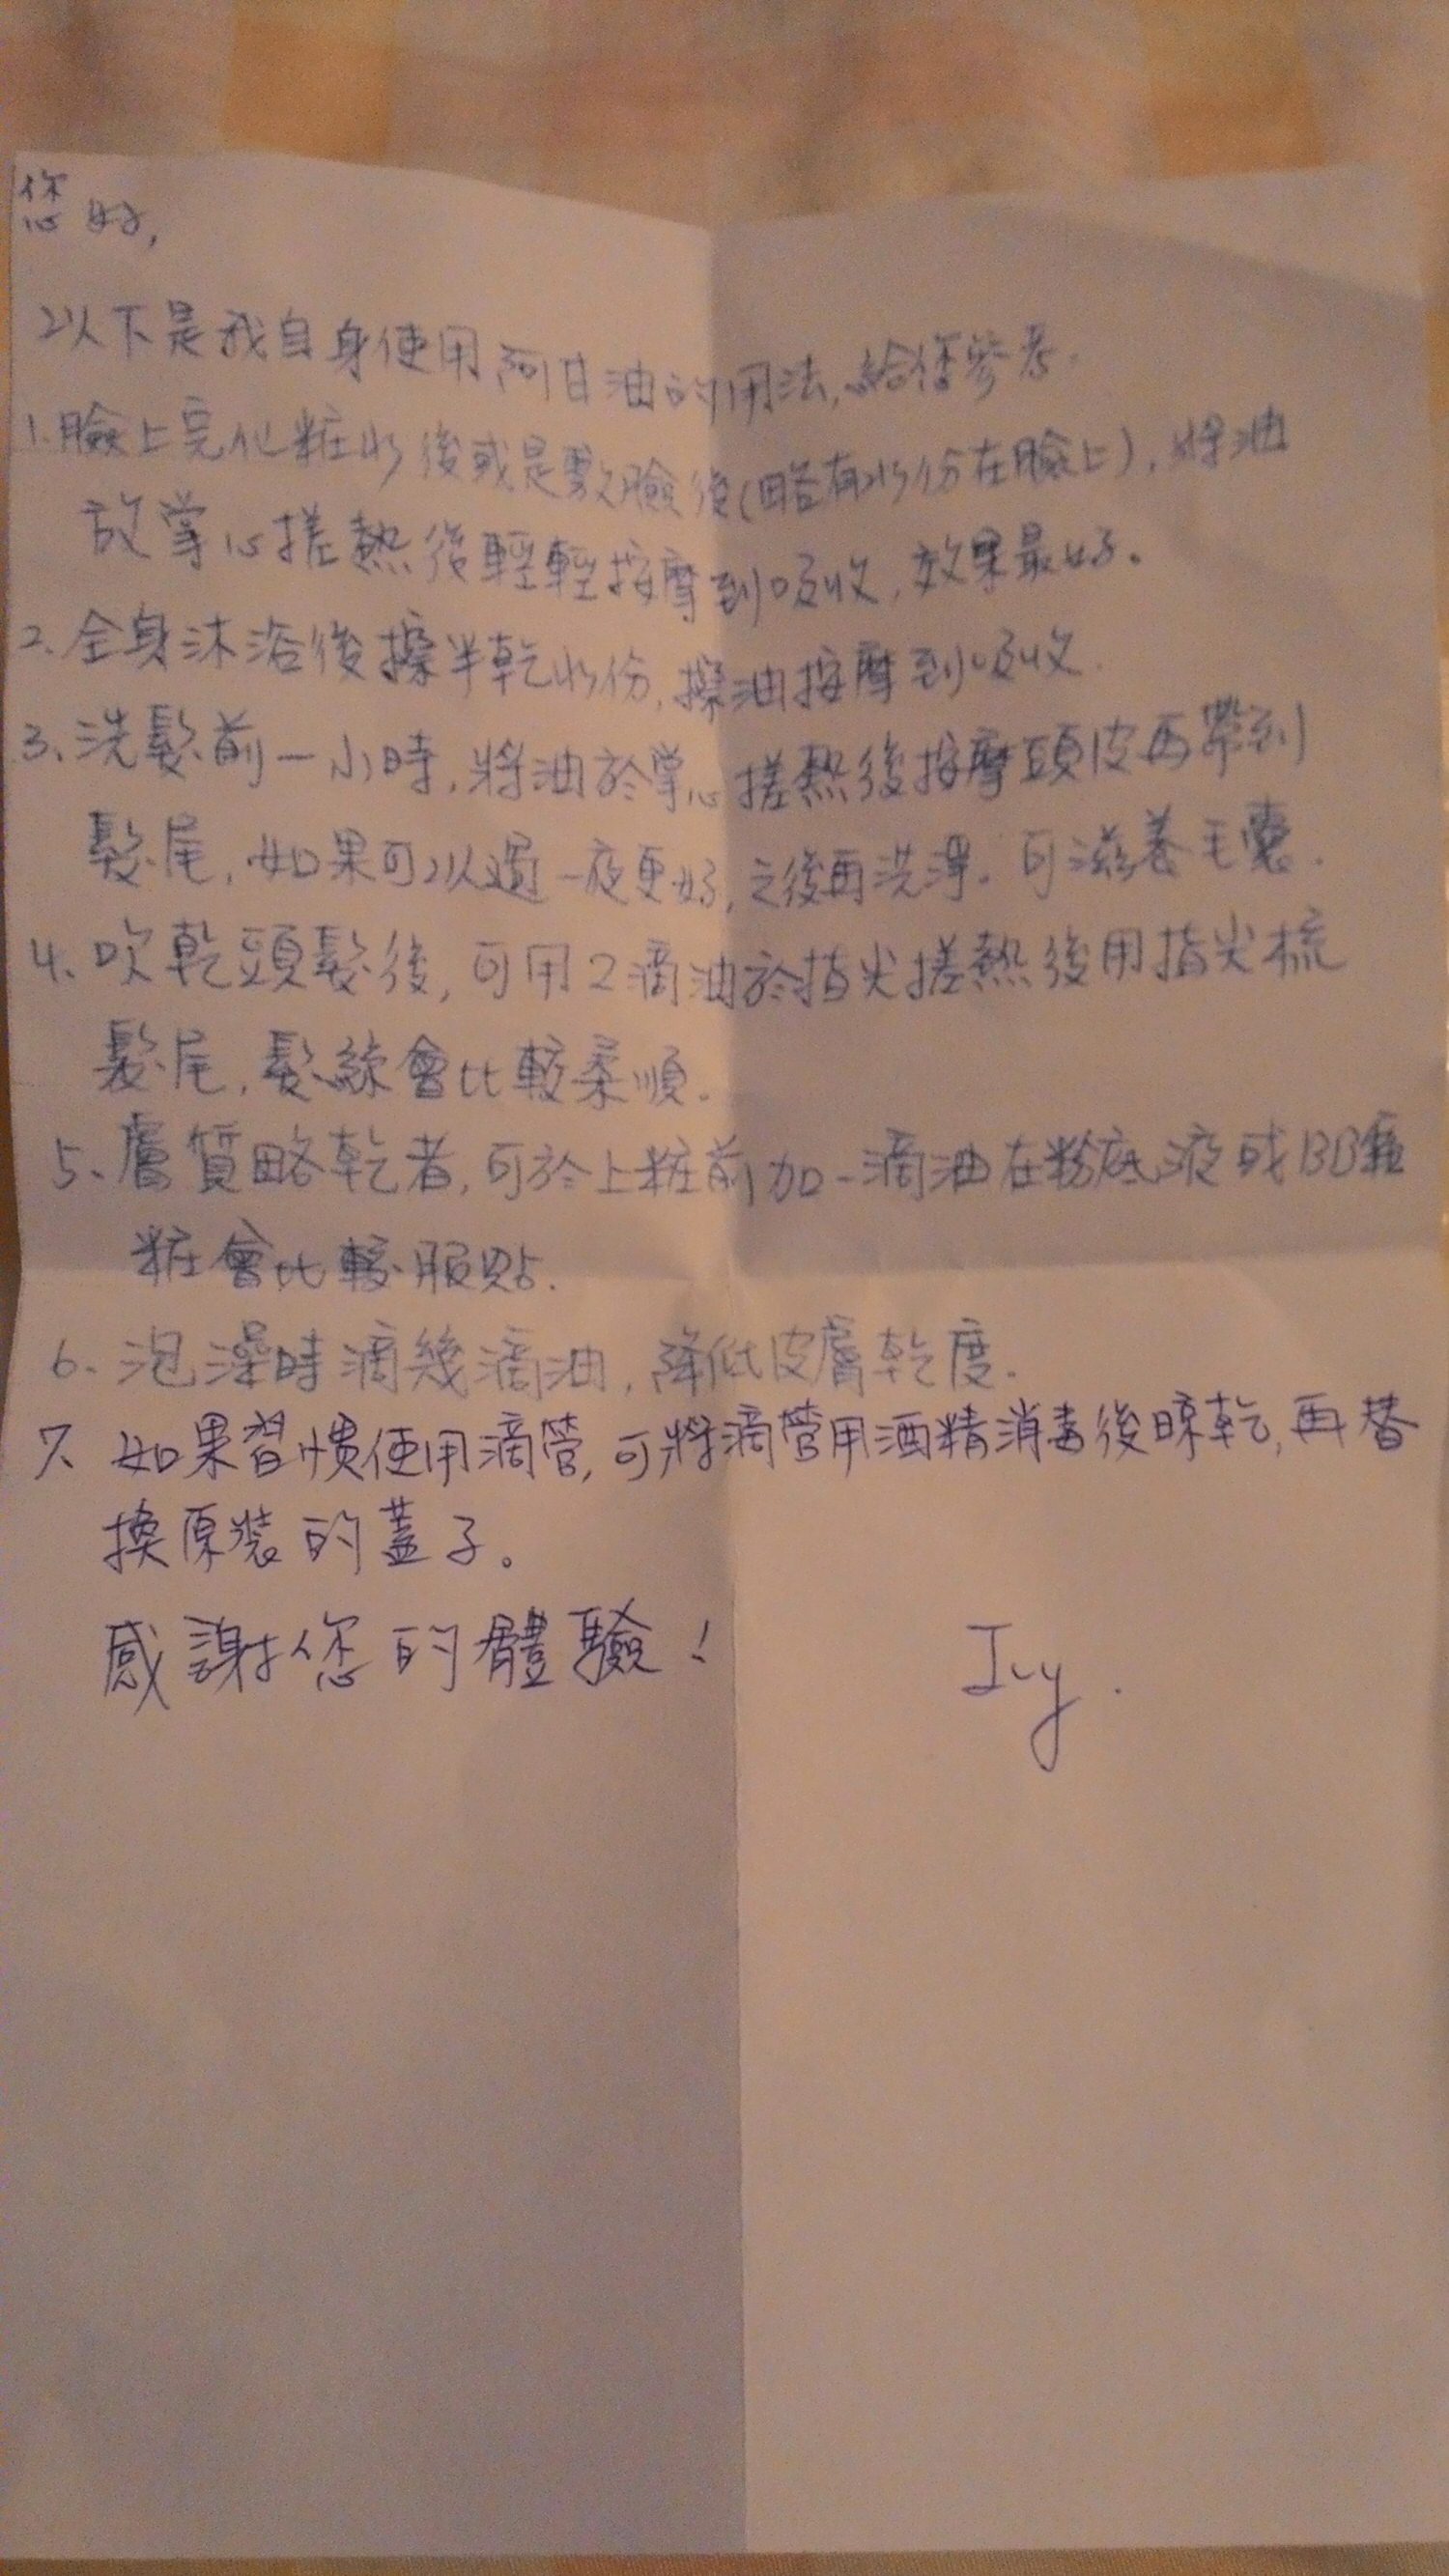 您好,
以下是我自身使用阿甘油的用法,給您參考.
1.臉上完化粧水後或是敷臉後(略有水份在臉上),將油
放掌心搓熱後輕輕按摩到吸收,效果最好。
2.全身沐浴後擦半乾水份,擦油按摩到吸收.
3、洗髮前一小時,將油於掌心搓熱後按摩頭皮再帶到
髮尾,如果可以過一夜更好,之後再洗淨。可滋養毛囊.
4、吹乾頭髮後,可用2滴油於指尖搓熱後用指尖梳
髮尾,髮絲會比較柔順.
5、膚質略乾者,可於上粧前加一滴油在粉底液或BB霜
粧會比較服貼.
6、泡澡時滴幾滴油,降低皮膚乾度.
7、如果習慣使用滴管,可將滴管用酒精消毒後晾乾,再替
換原裝的蓋子。
感謝您的體驗!
Ivy.